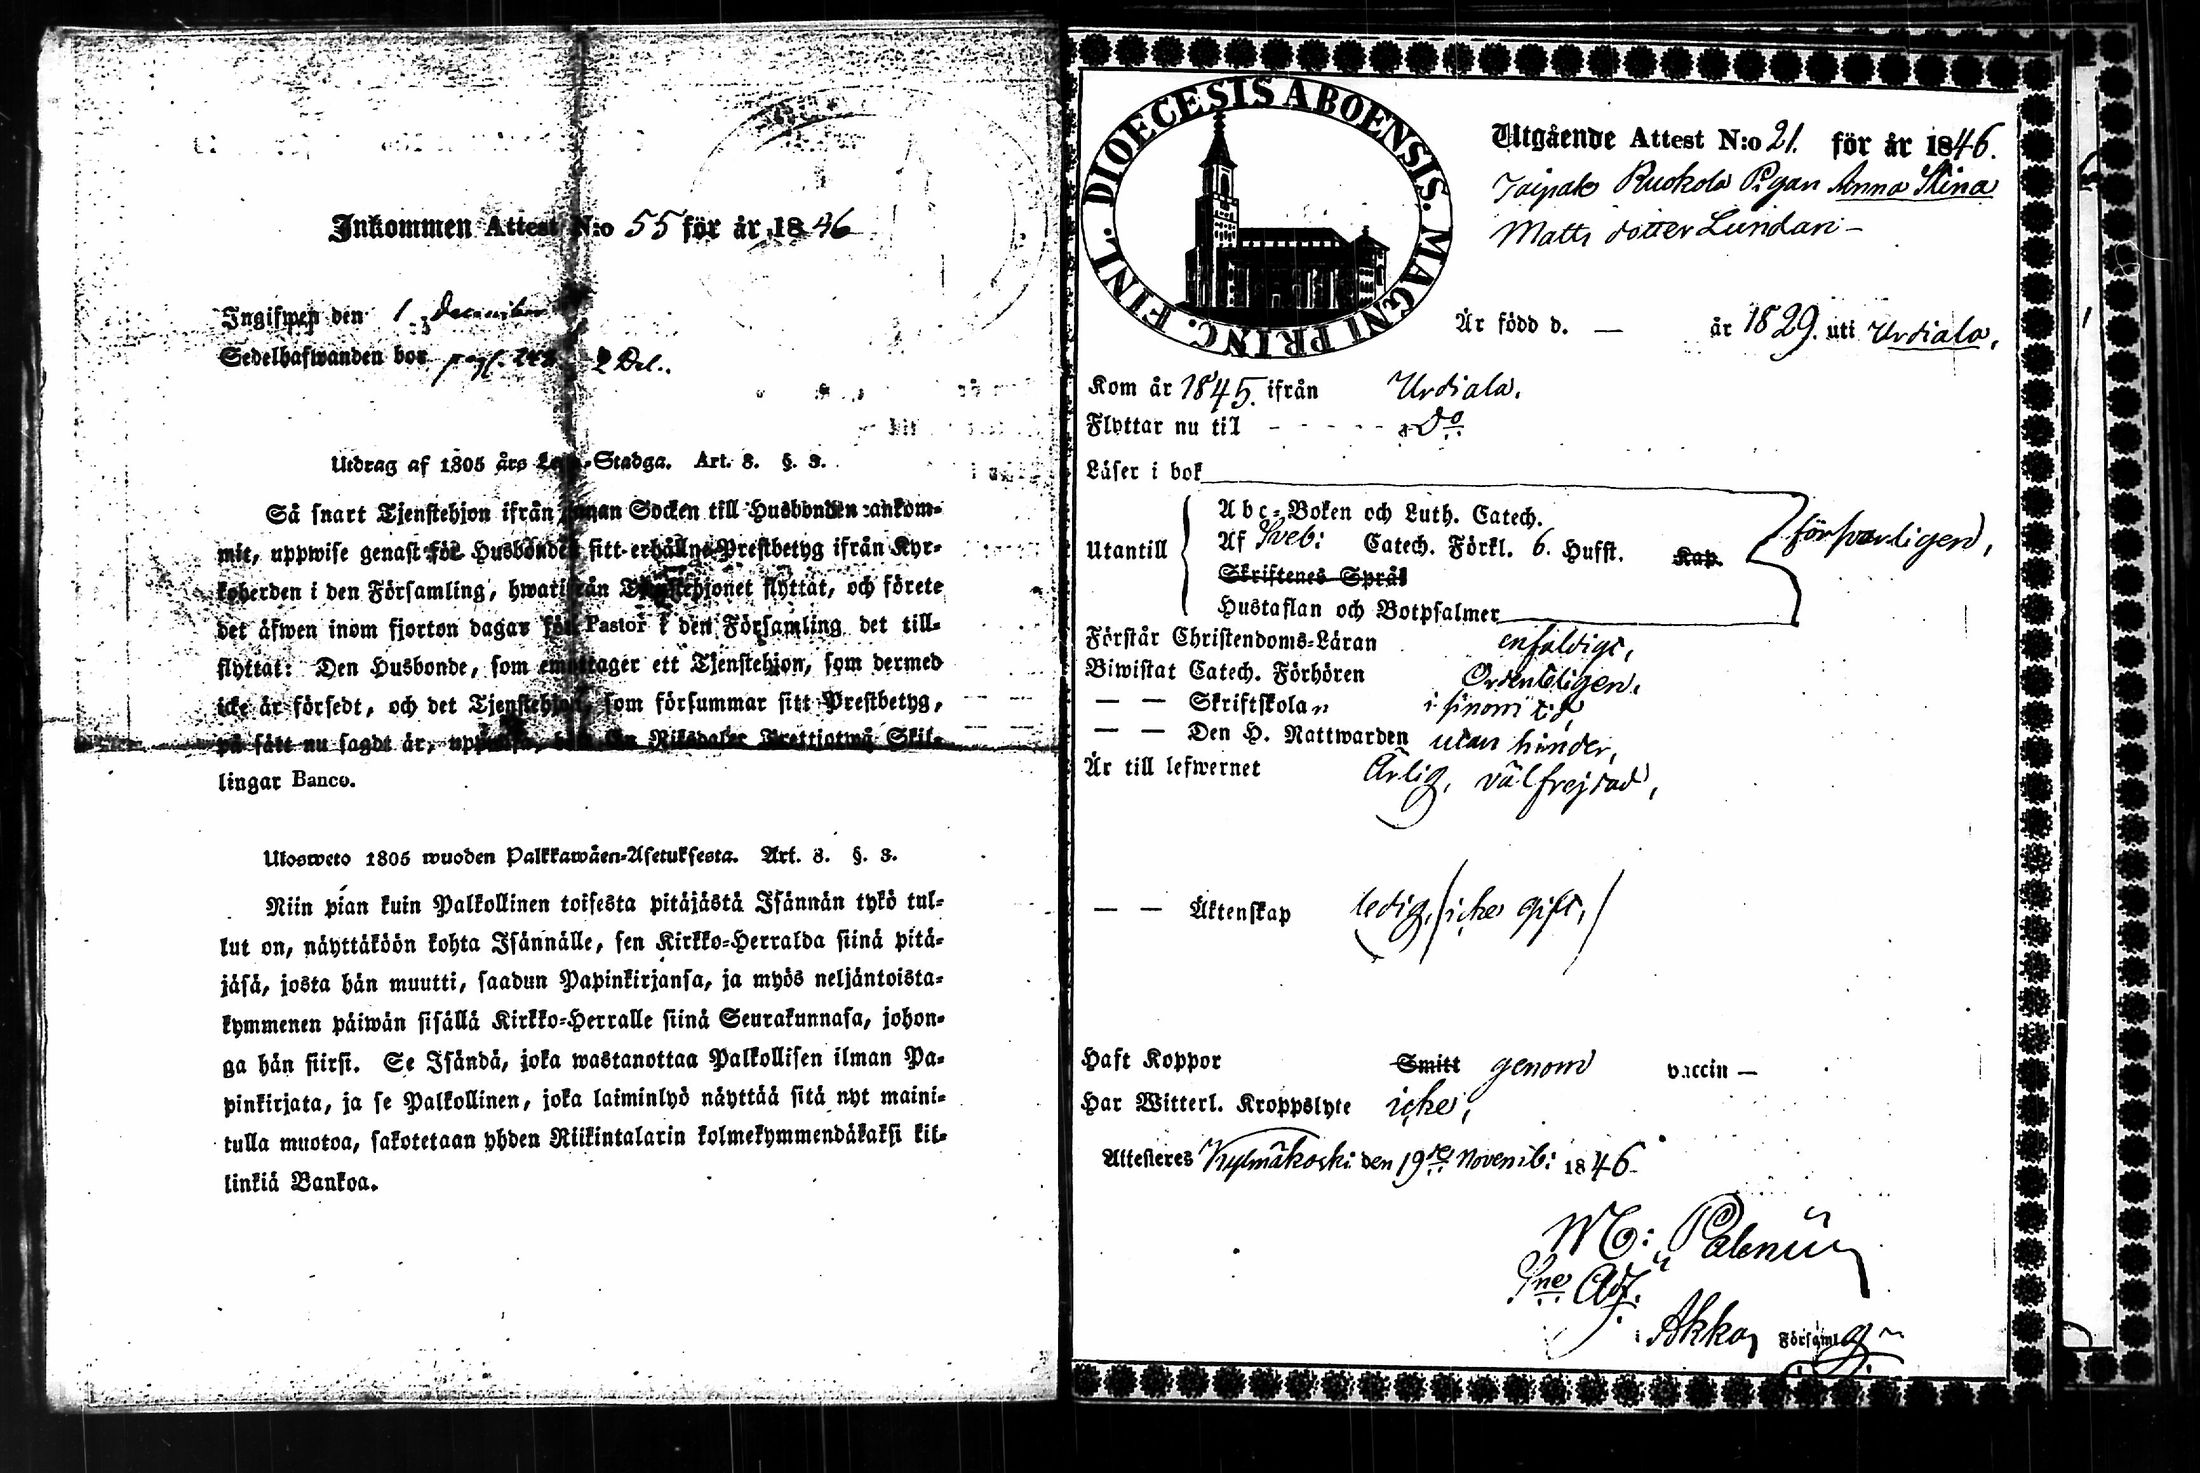 Inkommen Attest N:o 55 för år 1846
Ingifwen den 1 December
Sedelhafwanden bor pag. 248 2 Del.
Utdrag af 1805 års Lego-Stadga. Art. 8. §. 3.
Så snart Tjenstehjon ifrån annan Socken till Husbonden ankom-
mit, uppwise genast för Husbonden sitt erhållne Prestbetyg ifrån Kyr-
koherden i den Församling, hwarifrån Tjenstehjonet flyttat, och förete
det äfwen inom fjorton dagar för Pastor i den Församling det till-
flyttat: Den Husbonde, som emottager ett Tjenstehjon, som dermed
icke är försedt, och det Tjenstehjon, som försummar sitt Prestbetyg,
på sätt nu sagdt är, uppwisa, bör En Riksdaler Trettiotwå Skil-
lingar Banco.
Ulosweto 1805 wuoden Palkkawäen-Asetuksesta. Art. 8. §. 3.
Niin pian kuin Palkollinen toisesta pitäjästä Isännän tykö tul-
lut on, näyttäköön kohta Isännälle, sen Kirkko-Herralda siinä pitä-
jäsä, josta hän muutti, saadun Papinkirjansa, ja myös neljäntoista-
kymmenen päiwän sisällä Kirkko-Herralle siinä Seurakunnasa, johon-
ga hän siirsi. Se Isändä, joka wastanottaa Palkollisen ilman Pa-
pinkirjata, ja se Palkollinen, joka laiminlyö näyttää sitä nyt maini-
tulla muotoa, sakotetaan yhden Riikintalarin kolmekymmendäkaksi kil-
linkiä Bankoa.
DIOECESIS ABOENSIS. MAGNI PRINC. FINL.
Utgående Attest N:o 21. för år 1846.
Taipale Ruokola Pigan Anna Stina
Matts dotter Lundan –
Är född d. — år 1829. uti Urdiala,
Kom år 1845. ifrån Urdiala.
Flyttar nu til - - - - - Do
Läser i bok
Utantill
Abc-Boken och Luth. Catech.
Af Sveb: Catech. Förkl. 6. Hufst. Kap.
Skriftenes Språk
försvarligen,
Hustaflan och Botpsalmer
Förstår Christendoms-Läran enfaldigt,
Biwistat Catech. Förhören Ordenteligen,
— — Skriftskolan
— — Den H. Nattwarden utan hinder,
Är till lefwernet Ärlig, välfrejdad,
— — Äktenskap ledig, (icke gift,)
Haft Koppor Smitt genom vaccin —
Har Witterl. Kroppslyte icke,
Attesteres Kylmäkoski den 19de Novemb: 1846
i Akka Församl